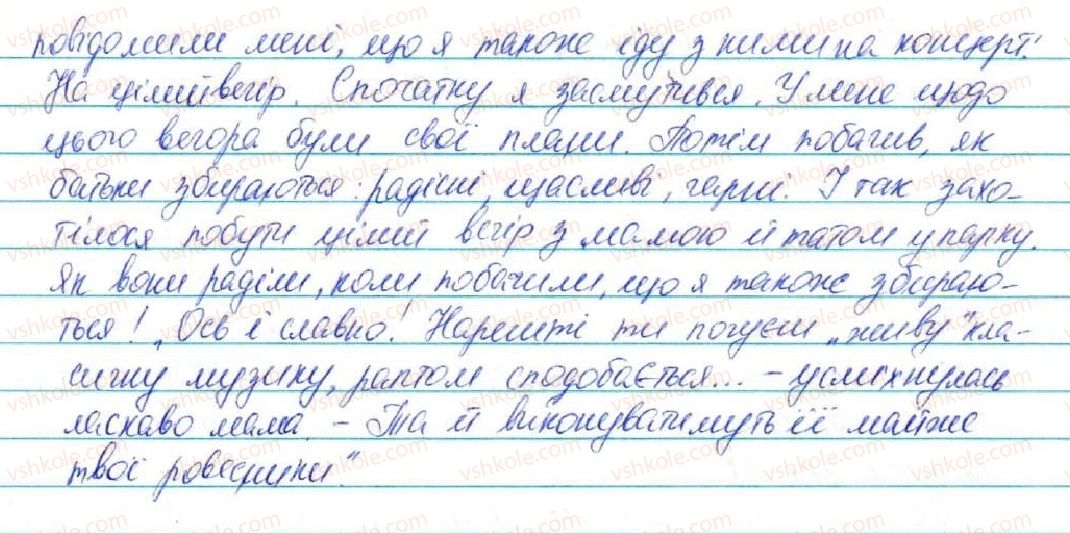 повідомили мені, що я також іду з ними на концерт.
На цілий вечір. Спочатку я засмутився. У мене щодо
цього вечора були свої плани. Потім побачив, як
батьки збираються: радісні, щасливі, гарні. І так захо-
тілося побути цілий вечір з мамою й татом у парку.
Як вони раділи, коли побачили, що я також збираю-
ться! „Ось і славно! Нарешті ти почуєш „живу" кла-
сичну музику, раптом сподобається... - усміхнулась
ласкаво мама. - Та й виконуватимуть її майже
твої ровесники".